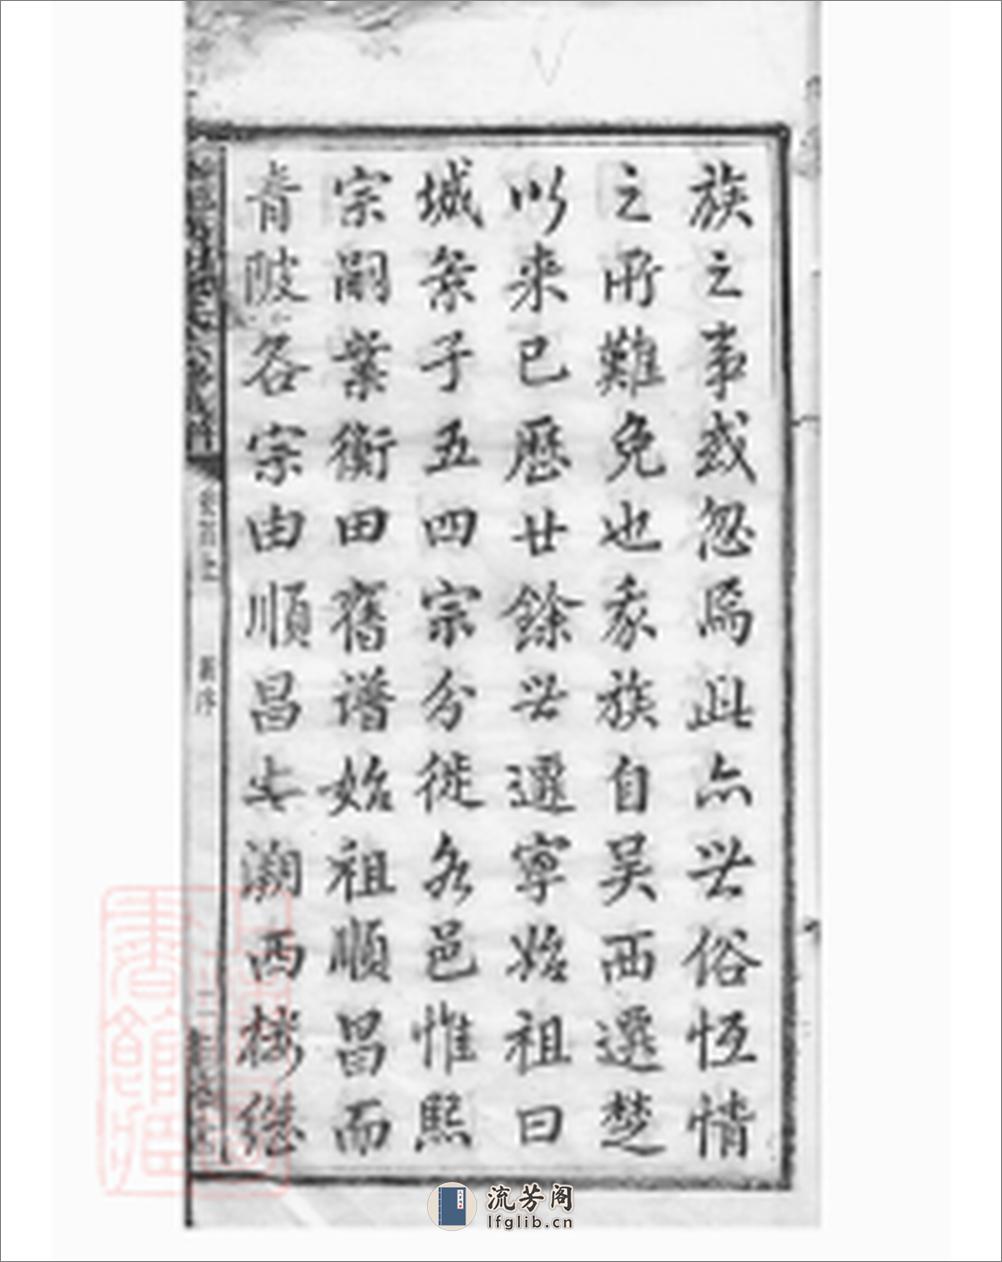 族之事或忽焉此亦世俗恆情
之所難免也我族自吴西遷楚
以來已歷廿餘世遷寧始祖曰
城祭子五四宗分徙各邑惟熙
宗嗣業衡田舊谱始祖順昌而
青陂各宗由順昌安湖西楼继
二
流芳阁
lfglib.cn